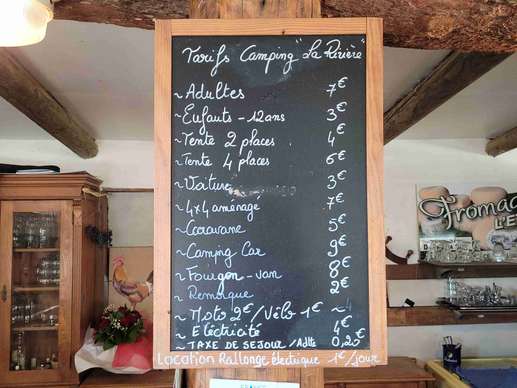 Tarifs Camping "La Rivière"
~ Adultes 7€
~ Enfants - 12ans 3€
~ Tente 2 places 4€
~ Tente 4 places 6€
~ Voiture 3€
~ 4x4 aménagé 7€
~ Caravane 5€
~ Camping Car 9€
~ Fourgon - van 8€
~ Remorque 2€
~ Moto 2€/Vélo 1€ ~
~ Electricité 4€
~ TAXE DE SEJOUR/Adlte 0,20€
Location Rallonge électrique 1€/jour